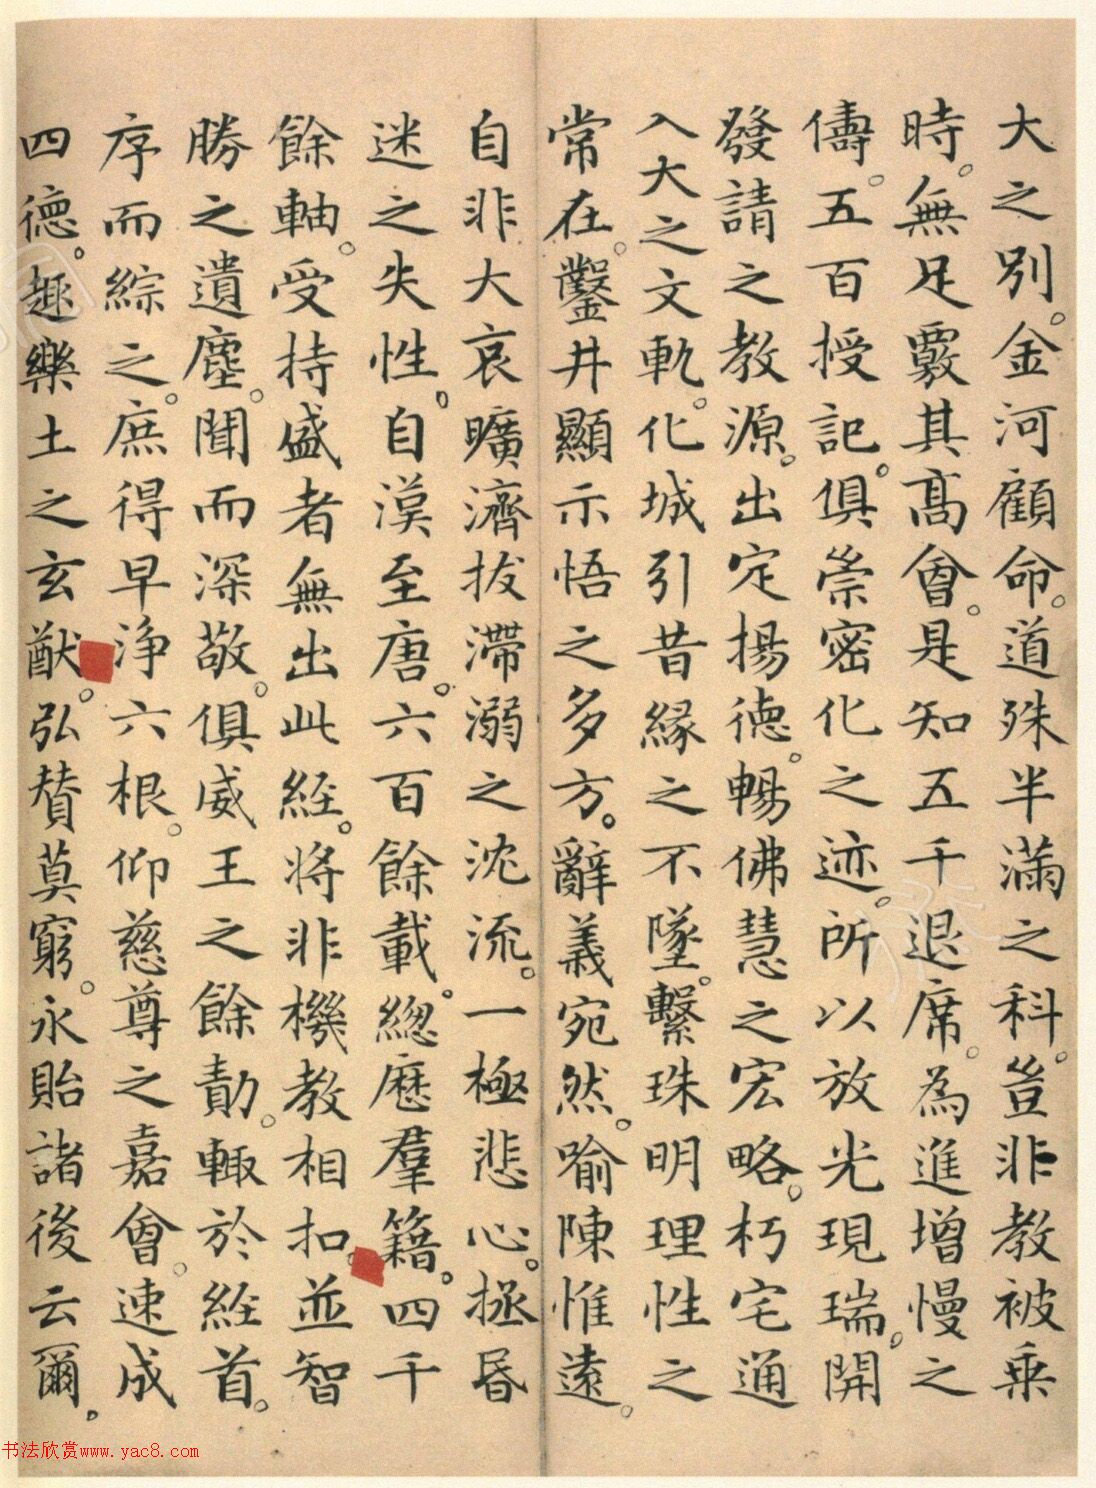 大之別。金河顧命。道殊半滿之科。豈非教被乘
時。無足覈其髙會。是知五千退席。為進增慢之
儔。五百授記。俱崇密化之迹。所以放光現瑞。開
發請之教源。出定揚德。暢佛慧之宏略。朽宅通
入大之文軌。化城引昔緣之不墜。繫珠明理性之
常在。鑿井顯示悟之多方。辭義宛然。喻陳惟遠。
自非大哀曠濟拔滯溺之沈流。一極悲心。拯昏
迷之失性。自漢至唐。六百餘載。緫歷羣籍。四千
餘軸。受持盛者無出此經。將非機教相扣。並智
勝之遺塵。聞而深敬。俱威王之餘勣。輙於經首。
序而綜之。庶得早淨六根。仰慈尊之嘉會。速成
四德。趣樂土之玄猷。弘賛莫窮。永貽諸後云爾。
书法欣赏www.yac8.com